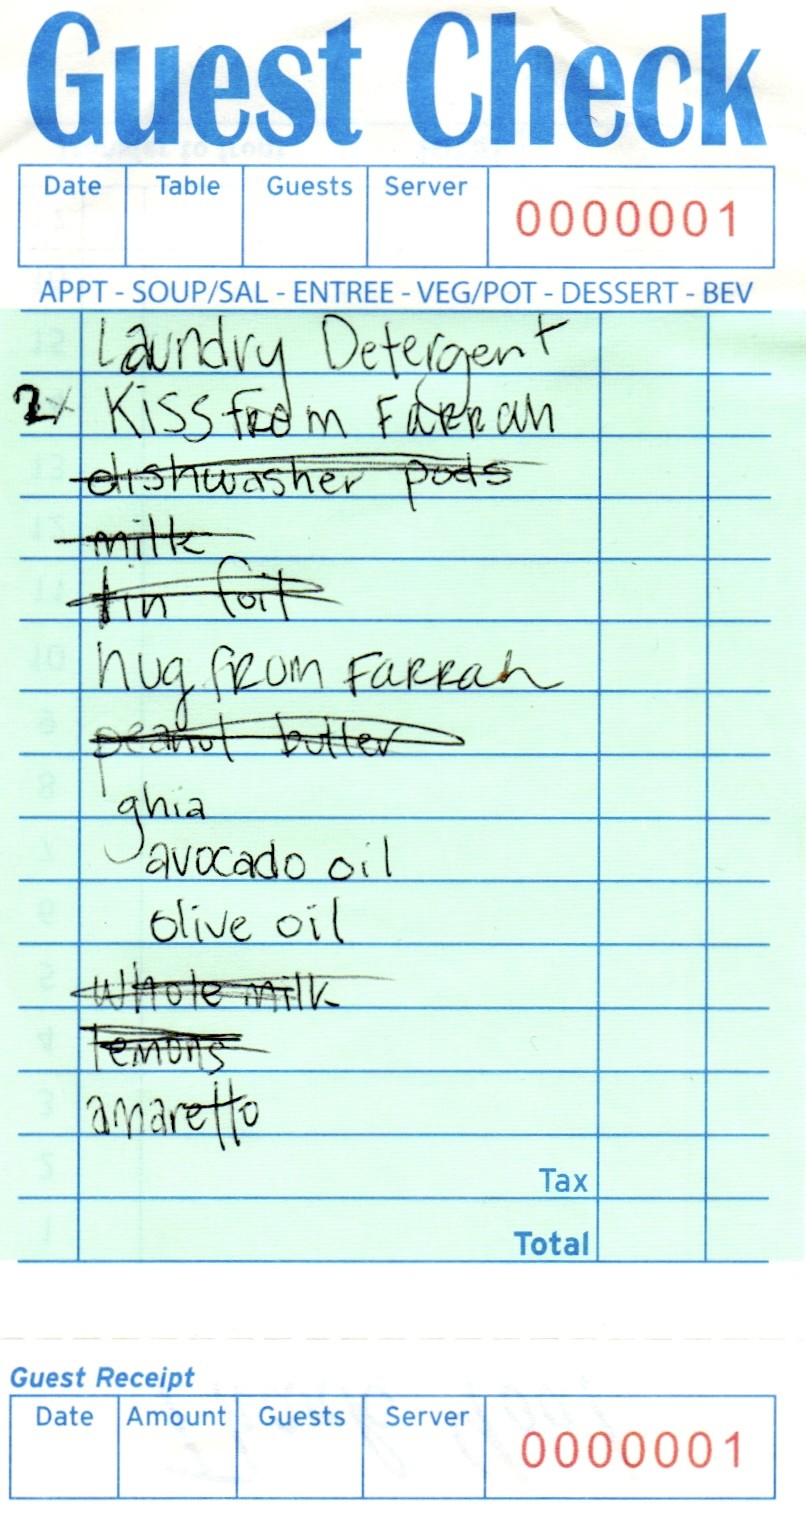 Guest Check
Date Table Guests Server 0000001
APPT - SOUP/SAL - ENTREE - VEG/POT - DESSERT - BEV
Laundry Detergent
2x Kiss from Farrah
dishwasher pods
milk
tin foil
hug from Farrah
peanut butter
ghia
avocado oil
olive oil
whole milk
lemons
amaretto
Tax
Total
Guest Receipt
Date Amount Guests Server 0000001